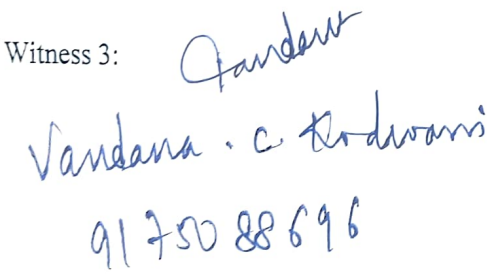 Witness 3:
Vandana . C Kodwani
9175088696